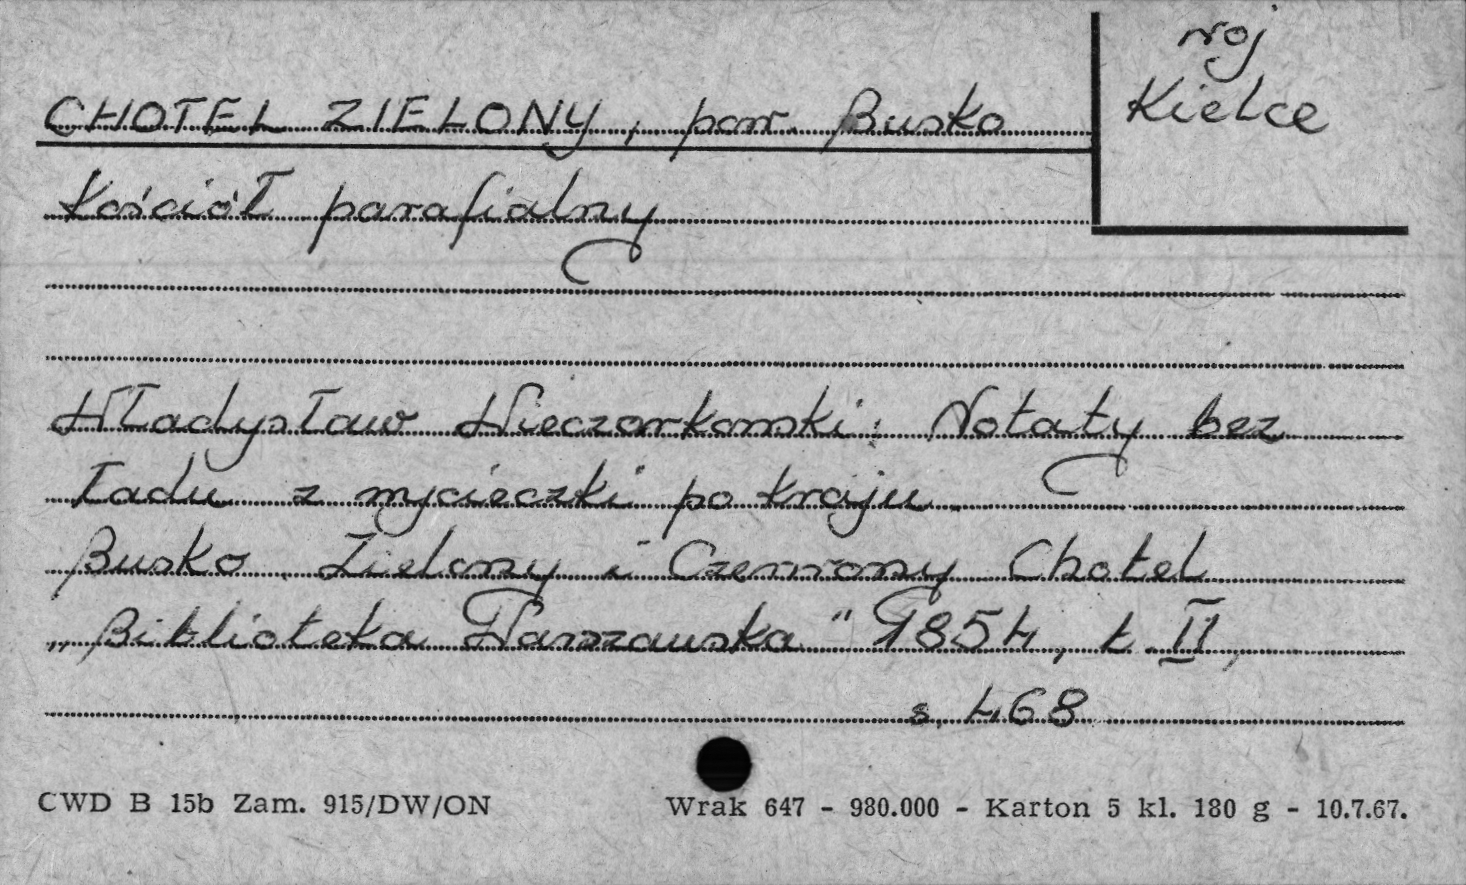 woj
Kielce
CHOTEL ZIELONY, pow. Busko
Kościół parafialny
Władysław Wieczorkowski: Notaty bez
ładu z wycieczki po kraju.
Busko. Zielony i Czerwony Chotel
„Biblioteka Warszawska" 1854, t. II,
s. 468
CWD B 15b Zam. 915/DW/ON
Wrak 647 - 980.000 - Karton 5 kl. 180 g - 10.7.67.